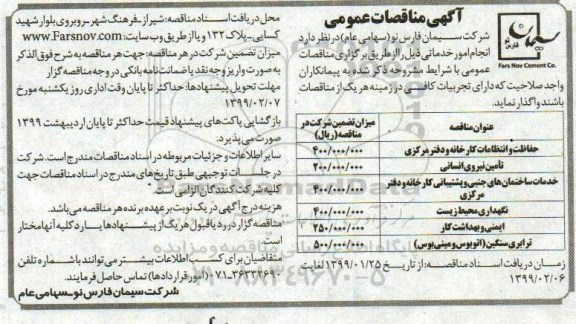 آگهی مناقصات عمومی
سیمان
فارس نو
Fars Nov Cement Co.
شرکت سیمان فارس نو (سهامی عام) در نظر دارد
انجام امور خدماتی ذیل را از طریق برگزاری مناقصات
عمومی با شرایط مشروحه ذکر شده به پیمانکاران
واجد صلاحیت که دارای تجربیات کافی در زمینه هر یک از مناقصات
باشند واگذار نماید.
عنوان مناقصه | میزان تضمین شرکت در مناقصه (ریال)
حفاظت و انتظامات کارخانه و دفتر مرکزی | ۴۰۰/۰۰۰/۰۰۰
تأمین نیروی انسانی | ۲۰۰/۰۰۰/۰۰۰
خدمات ساختمان های جنبی و پشتیبانی کارخانه و دفتر مرکزی | ۴۰۰/۰۰۰/۰۰۰
نگهداری محیط زیست | ۴۰۰/۰۰۰/۰۰۰
ایمنی و بهداشت کار | ۲۵۰/۰۰۰/۰۰۰
ترابری سنگین (اتوبوس و مینی بوس) | ۵۰۰/۰۰۰/۰۰۰
زمان دریافت اسناد مناقصه: از تاریخ ۱۳۹۹/۰۱/۲۵ لغایت
۱۳۹۹/۰۲/۰۶
محل دریافت اسناد مناقصه: شیراز ـ فرهنگ شهر ـ روبروی بلوار شهید
کسایی ـ پلاک ۱۳۲ و یا از طریق وب سایت: www.Farsnov.com
میزان تضمین شرکت در هر مناقصه: جهت هر مناقصه به شرح فوق الذکر
به صورت واریز وجه نقد یا ضمانت نامه بانکی در وجه مناقصه گزار
مهلت تحویل پیشنهادها: حداکثر تا پایان وقت اداری روز یکشنبه مورخ
۱۳۹۹/۰۲/۰۷
بازگشایی پاکت های پیشنهاد قیمت حداکثر تا پایان اردیبهشت ۱۳۹۹
صورت می پذیرد.
سایر اطلاعات و جزئیات مربوطه در اسناد مناقصات مندرج است. شرکت
در جلسات توجیهی طبق تاریخ های مندرج در اسناد مناقصات جهت
کلیه شرکت کنندگان الزامی است.
هزینه درج آگهی در یک نوبت بر عهده برنده هر مناقصه می باشد.
مناقصه گزار در رد یا قبول هر یک از پیشنهادها یا رد کلیه آنها مختار
است
متقاضیان برای کسب اطلاعات بیشتر می توانند با شماره تلفن
۰۷۱-۳۶۳۳۲۶۹۰ (امور قراردادها) تماس حاصل فرمایند.
شرکت سیمان فارس نو ـ سهامی عام
۰۲۱-۸۸۳۴۹۶۷۰-۵